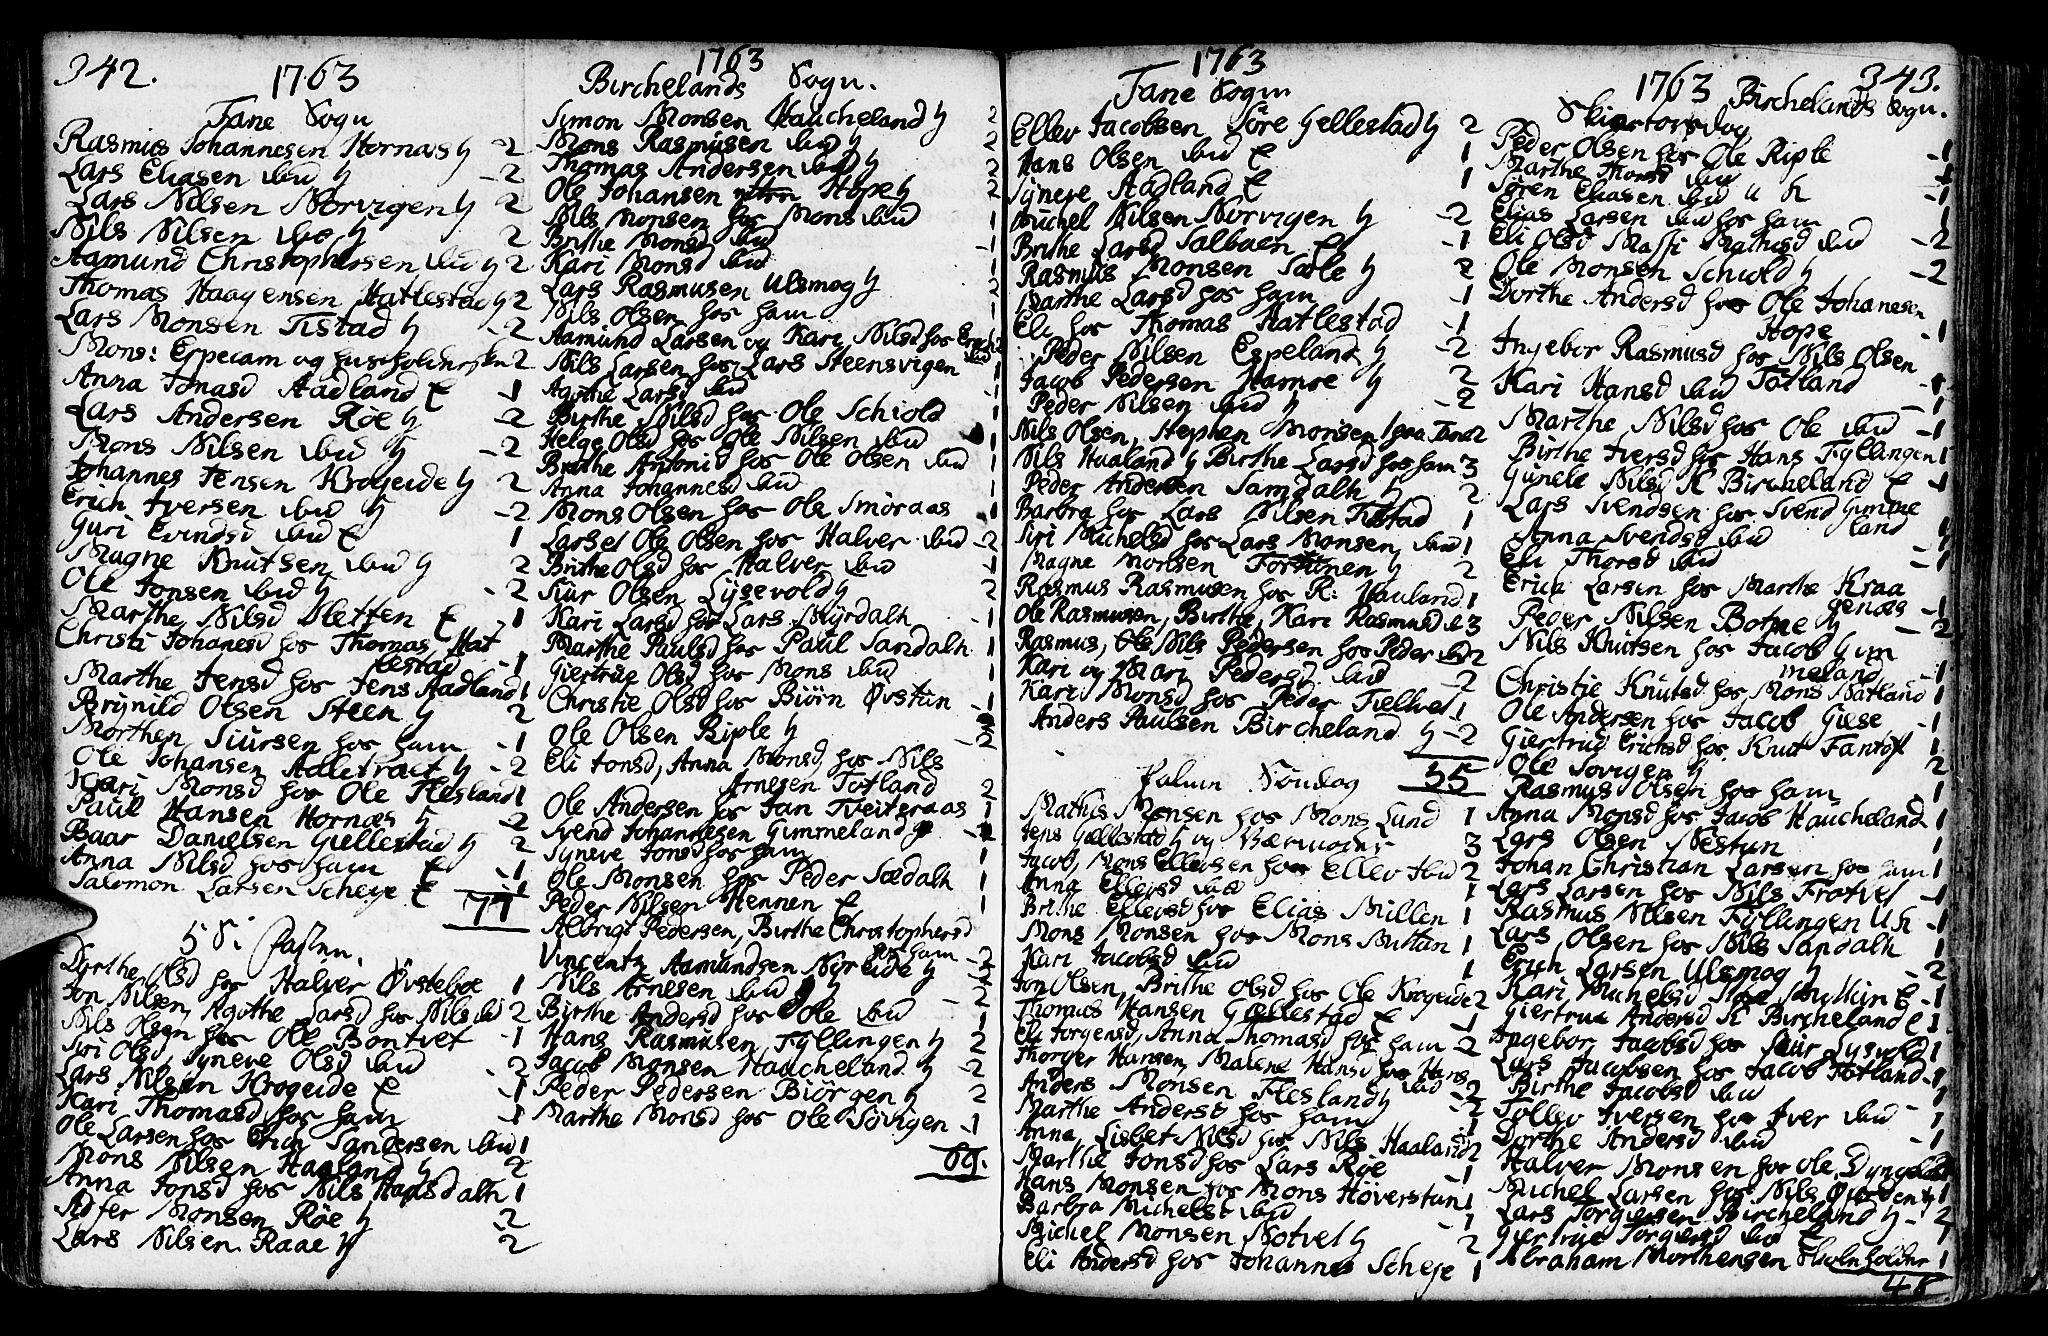 342.
1763
Fane Sogn
Rasmus Johannesen Hornæs H 2
Lars Eliasen ibid H 2
Lars Nilsen Norvigen H 2
Nils Nilsen ibid H 2
Aamund Christophersen ibid H 2
Thomas Haagensen Hatlestad H 2
Lars Monsen Tistad H 2
Mons: Erpecam og 2
Anna Jonasd Aadland E 1
Lars Andersen Røe H 2
Mons Nilsen ibid H 2
Johannes Jensen Krogeide H 2
Erich Iversen ibid H 2
Guri Evindsd ibid E 1
Magne Knutsen ibid H 2
Ole Jonsen ibid H 2
Marthe Nilsd Sletten E 1
Christi Johanesd hos Thomas Hat
lestad 1
Marthe Jensd hos Jens Aadland 1
Brynild Olsen Steen H 2
Morthen Siursen hos ham 1
Ole Johansen Aaletræet H 2
Kari Monsd hos Ole Flesland 1
Paul Hansen Hornæs H 2
Baar Danielsen Giellestad H 2
Anna Nilsd hos ham E 1
Salomon Larsen Scheye E 1
77
5 S: Fasten.
Dorthe Olsd hos Halver Øvsteboe 1
Jon Nilsen, Agothe Larsd hos Nils ibid 2
Nils Olsen hos Ole Bontvet 1
Siri Olsd, Synneve Olsd ibid 2
Lars Nilsen Krogeide E 1
Kari Thomasd hos ham 1
Ole Larsen hos Erich Sandersen ibid 1
Mons Nilsen Haaland H 2
Anna Jonsd hos Nils Haugsdalh 1
Adser Monsen Røe H 2
Lars Nilsen Raae H 2
1763
Birchelands Sogn.
Simon Monsen Haucheland H 2
Mons Rasmusen ibid H 2
Thomas Andersen ibid H 2
Ole Johansen Hope H 2
Nils Monsen hos Mons ibid 1
Brithe Monsd ibid 1
Kari Monsd ibid 1
Lars Rasmusen Ulsmog H 2
Nils Olsen hos ham 1
Aamund Larsen og Kari Nilsd hos Erich 2
ibid
Nils Larsen hos Lars Steensvigen 1
Agothe Larsd ibid 1
Birthe Nilsd hos Ole Schiold 1
Helge Olsd hos Ole Nilsen ibid 1
Brithe Antonid hos Ole Olsen ibid 1
Anna Johannesd ibid 1
Mons Olsen hos Ole Smøraas 1
Lars et Ole Olsen hos Halver ibid 2
Brithe Olsd hos Halver ibid 1
Siur Olsen Lysevold H 2
Kari Larsd hos Lars Myrdalh 1
Marthe Paulsd hos Paul Sandalh 1
Giertrue Olsd hos Mons ibid 1
Christie Olsd hos Biørn Øvstun 1
Ole Olsen Riple H 2
Eli Jonsd, Anna Monsd, hos Nils
Arnesen Totland 2
Ole Andersen hos Jan Tveiteraas 1
Svend Johannesen Gimmeland H 2
Syneve Jonsd hos ham 1
Ole Monsen hos Peder Sædalh 1
Peder Nilsen Hennen E 1
Albrigt Pedersen, Birthe Christophersd
hos ham 2
Vincentz Aamundsen Nyreide H 2
Nils Arnesen ibid H 2
Birthe Andersd hos Ole ibid 1
Hans Rasmusen Fyllingen H 2
Jacob Monsen Haucheland H 2
Peder Pedersen Biørgen H 2
Marthe Monsd hos Ole Søvigen 1
69.
1763
Fane Sogn
Ellev Jacobsen Søre Gellestad H 2
Hans Olsen ibid E 1
Syneve Aadland E 1
Michel Nilsen Norvigen H 2
Brithe Larsd Salbuen E 1
Rasmus Monsen Sæle H 2
Marthe Larsd hos ham 1
Eli hos Thomas Hatlestad 1
Peder Nilsen Espeland H 2
Jacob Pedersen Hamre H 2
Peder Nilsen ibid H 2
Nils Olsen, Stephen Monsen paa Fane 2
Nils Haaland H Birthe Larsd hos ham 3
Peder Andersen Samdalh H 2
Barbra hos Lars Nilsen Tistad 1
Siri Michelsd hos Lars Monsen, ibid 1
Magne Monsen Forthunen H 2
Rasmus Rasmusen hos R: Hauland 1
Ole Rasmusen, Birthe, Kari Rasmusd ib 3
Rasmus, Ole Nils Pedersen hos Peder ibid 2
Kari og Mari Pedersd ibid 2
Kari Monsd hos Peder Tielhet 1
Anders Paulsen Bircheland H 2
55
Palm Søndag
Mathis Monsen hos Mons Lund 1
Jens Gellestad H og 3
Jacob, Mons Ellevsen hos Ellev ibid 2
Anna Ellevsd ibid 1
Brithe Ellevsd hos Elias Millen 1
Mons Monsen hos Mons Nuttan 1
Kari Jacobsd ibid 1
Jon Olsen, Brithe Olsd hos Ole Krogeide 2
Thomas Hansen Gellestad E 1
Eli Jorgensd, Anna Thomasd hos ham 2
Thorger Hansen, Malene Hansd hos Hans
ibid 2
Anders Monsen Flesland H 2
Marthe Andersd hos ham 1
Anna, Lisbet Nilsd hos Nils Haaland 2
Marthe Jonsd hos Lars Røe 1
Hans Monsen hos Mons Høverstun 1
Barbra Michelsd ibid 1
Michel Monsen Notvet H 2
Eli Andersd hos Johannes Scheye 1
343.
1763 Birchelands Sogn.
Skiertorsdag
Peder Olsen hos Ole Riple 1
Marthe Thorsd ibid 1
Søren Eliasen ibid u h 1
Elias Larsen ibid hos ham 1
Eli Olsd Massi Mathisd ibid 2
Ole Monsen Schiold H 2
Dorthe Andersd hos Ole Johanesen
Hope 1
Ingebor Rasmusd hos Nils Olsen
Totland 1
Kari Hansd ibid 1
Marthe Nilsd hos Ole ibid 1
Birthe Iversd hos Hans Fyllingen 1
Gunele Nilsd K Bircheland E 1
Lars Svendsen hos Svend Gimme
land 1
Anna Svendsd ibid 1
Eli Thorsd ibid 1
Erich Larsen hos Marthe Kraa
genæs 1
Peder Nilsen Botne H 2
Nils Knutsen hos Jacob Gim
meland 1
Christie Knutsd hos Mons Natland 1
Ole Andersen hos Jacob Giese 1
Giertrud Erichsd hos Knut Fantoft 1
Ole Søvigen H 2
Rasmus Olsen hos ham 1
Anna Monsd hos Jacob Haucheland 1
Lars Olsen Nestun 1
Johan Christian Larsen hos ham 1
Lars Larsen hos Nils Frotvet 1
Rasmus Nilsen Fyllingen U h 1
Lars Olsen hos Nils Sandalh 1
Erich Larsen Ulsmog H 2
Kari Michelsd E 1
Giertrue Andersd K Bircheland E 1
Ingebor Jacobsd hos Siur Lysvold 1
Lars Jacobsen hos Jacob Totland 1
Birthe Jacobsd ibid 1
Tollev Iversen hos Iver ibid 1
Dorthe Andersd ibid 1
Halver Monsen hos Ole
Michel Larsen hos Nils 1
Lars Torgiersen Bircheland H 2
Giertrue Torgiersd ibid E 1
Abraham Morthensen Skoleholder 1
48